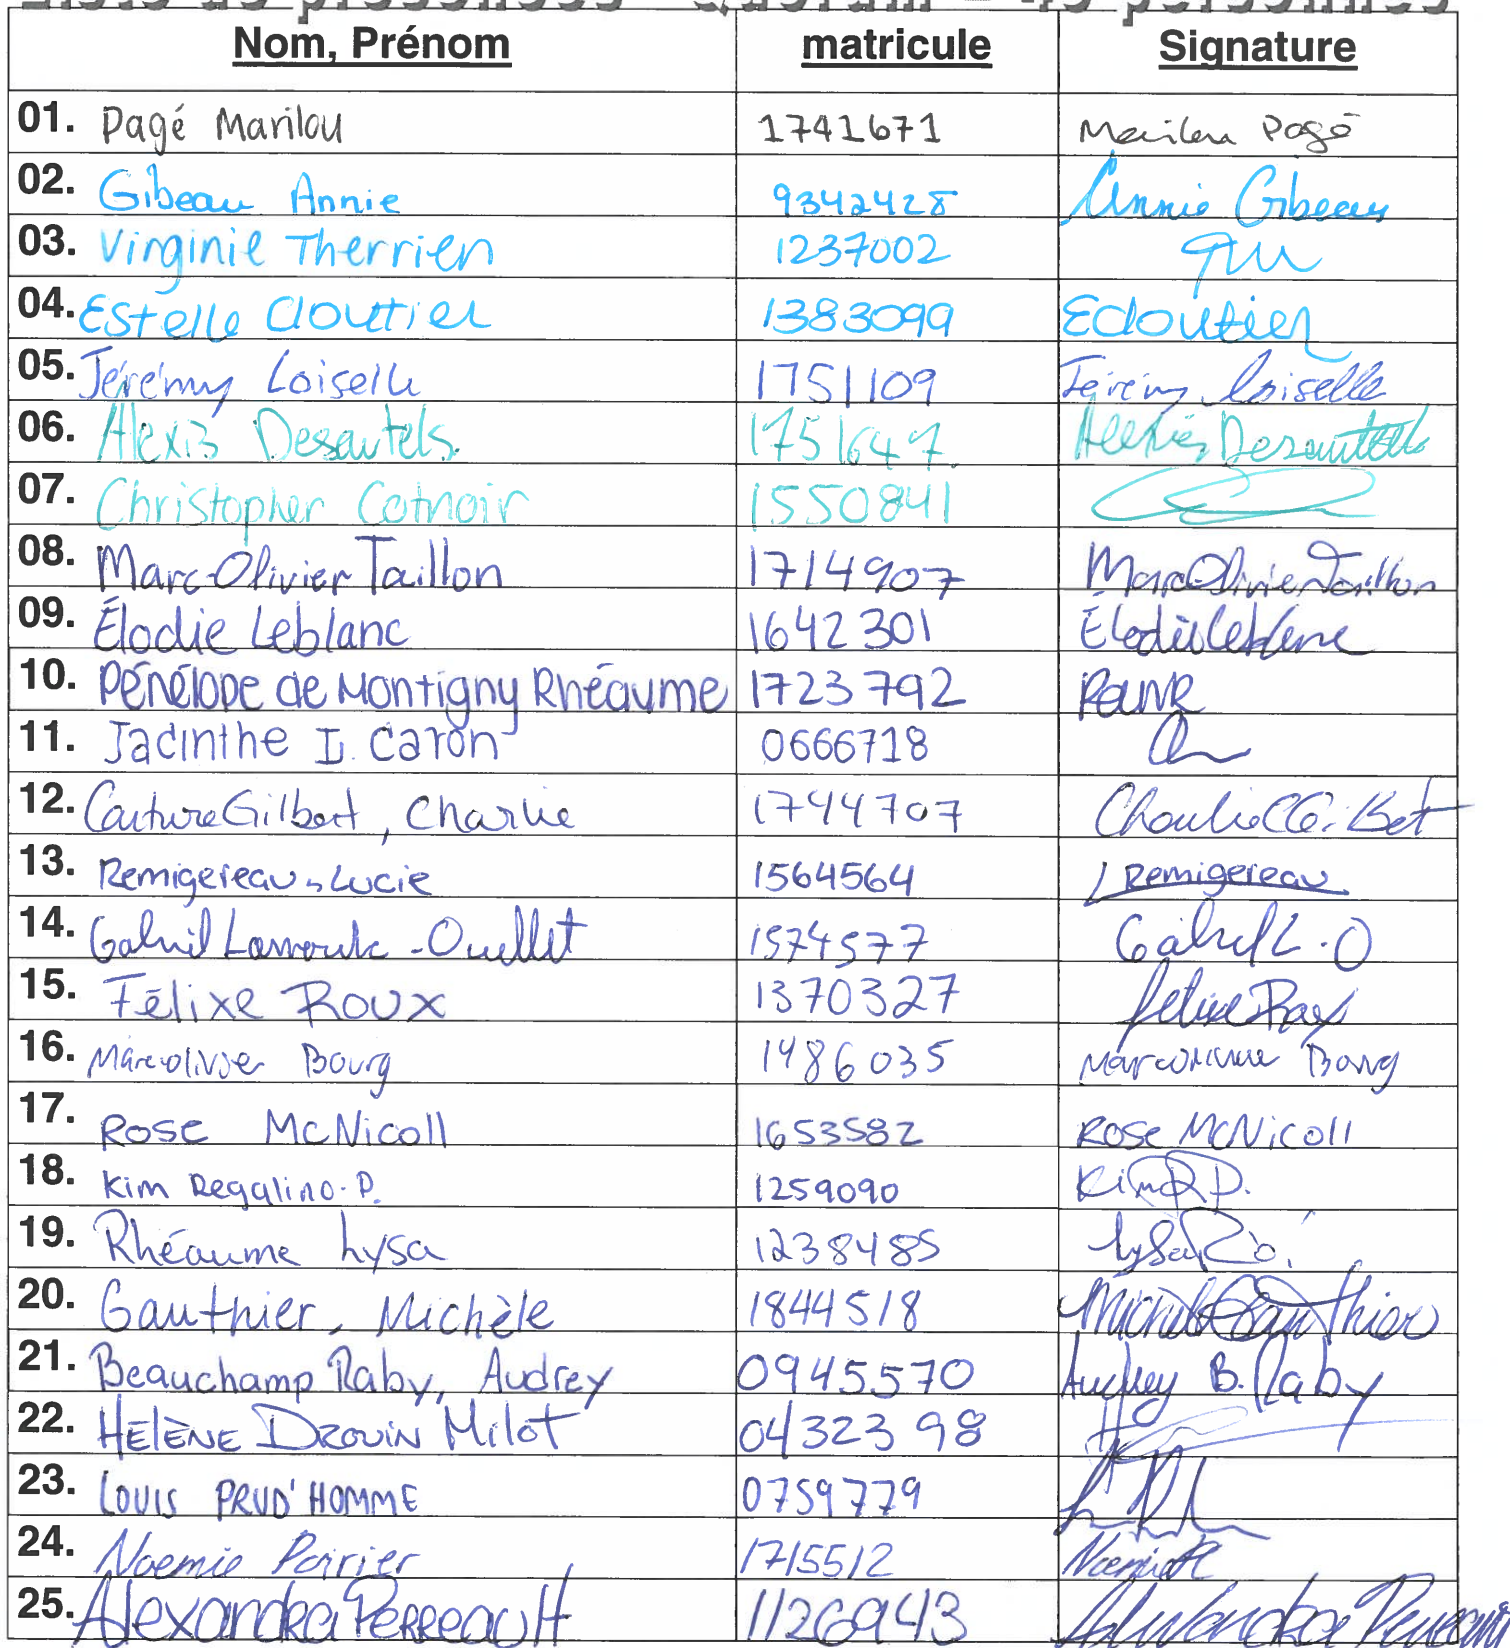 Liste de présences - Quorum = 45 personnes
Nom, Prénom matricule Signature
01. Pagé Marilou 1741671 Marilou Pagé
02. Gibeau Annie 9342428 Annie Gibeau
03. Virginie Therrien 1237002
04. Estelle Cloutier 1383099 ECloutier
05. Jérémy Loiselle 1751109 Jérémy Loiselle
06. Alexis Desautels. 1751647 Alexis Desautels
07. Christopher Cotnoir 1550841
08. Marc-Olivier Taillon 1714907 Marc-Olivier Taillon
09. Élodie Leblanc 1642301 Élodie Leblanc
10. Pénélope de Montigny Rhéaume 1723792
11. Jacinthe L. Caron 0666718
12. Couture Gilbert, Charlie 1744707 Charlie CGilbert
13. Remigereau, Lucie 1564564 Remigereau
14. Gabriel Lamourde-Ouellet 1574577 Gabriel L.O
15. Félixe Roux 1370327 Félixe Roux
16. Marc-olivier Bourg 1486035 Marc-olivier Bourg
17. Rose McNicoll 1653582 Rose McNicoll
18. Kim Regalino-P. 1259090 Kim R.P.
19. Rhéaume Lysa 1238485 Lysa R.
20. Gauthier, Michèle 1844518 Michèle Gauthier
21. Beauchamp Raby, Audrey 0945570 Audrey B. Raby
22. HÉLÈNE DROUIN Milot 0432398
23. LOUIS PRUD'HOMME 0759779
24. Noemie Poirier 1715512 Noemie P
25. Alexandra Perreault 1126943 Alexandra Perreault